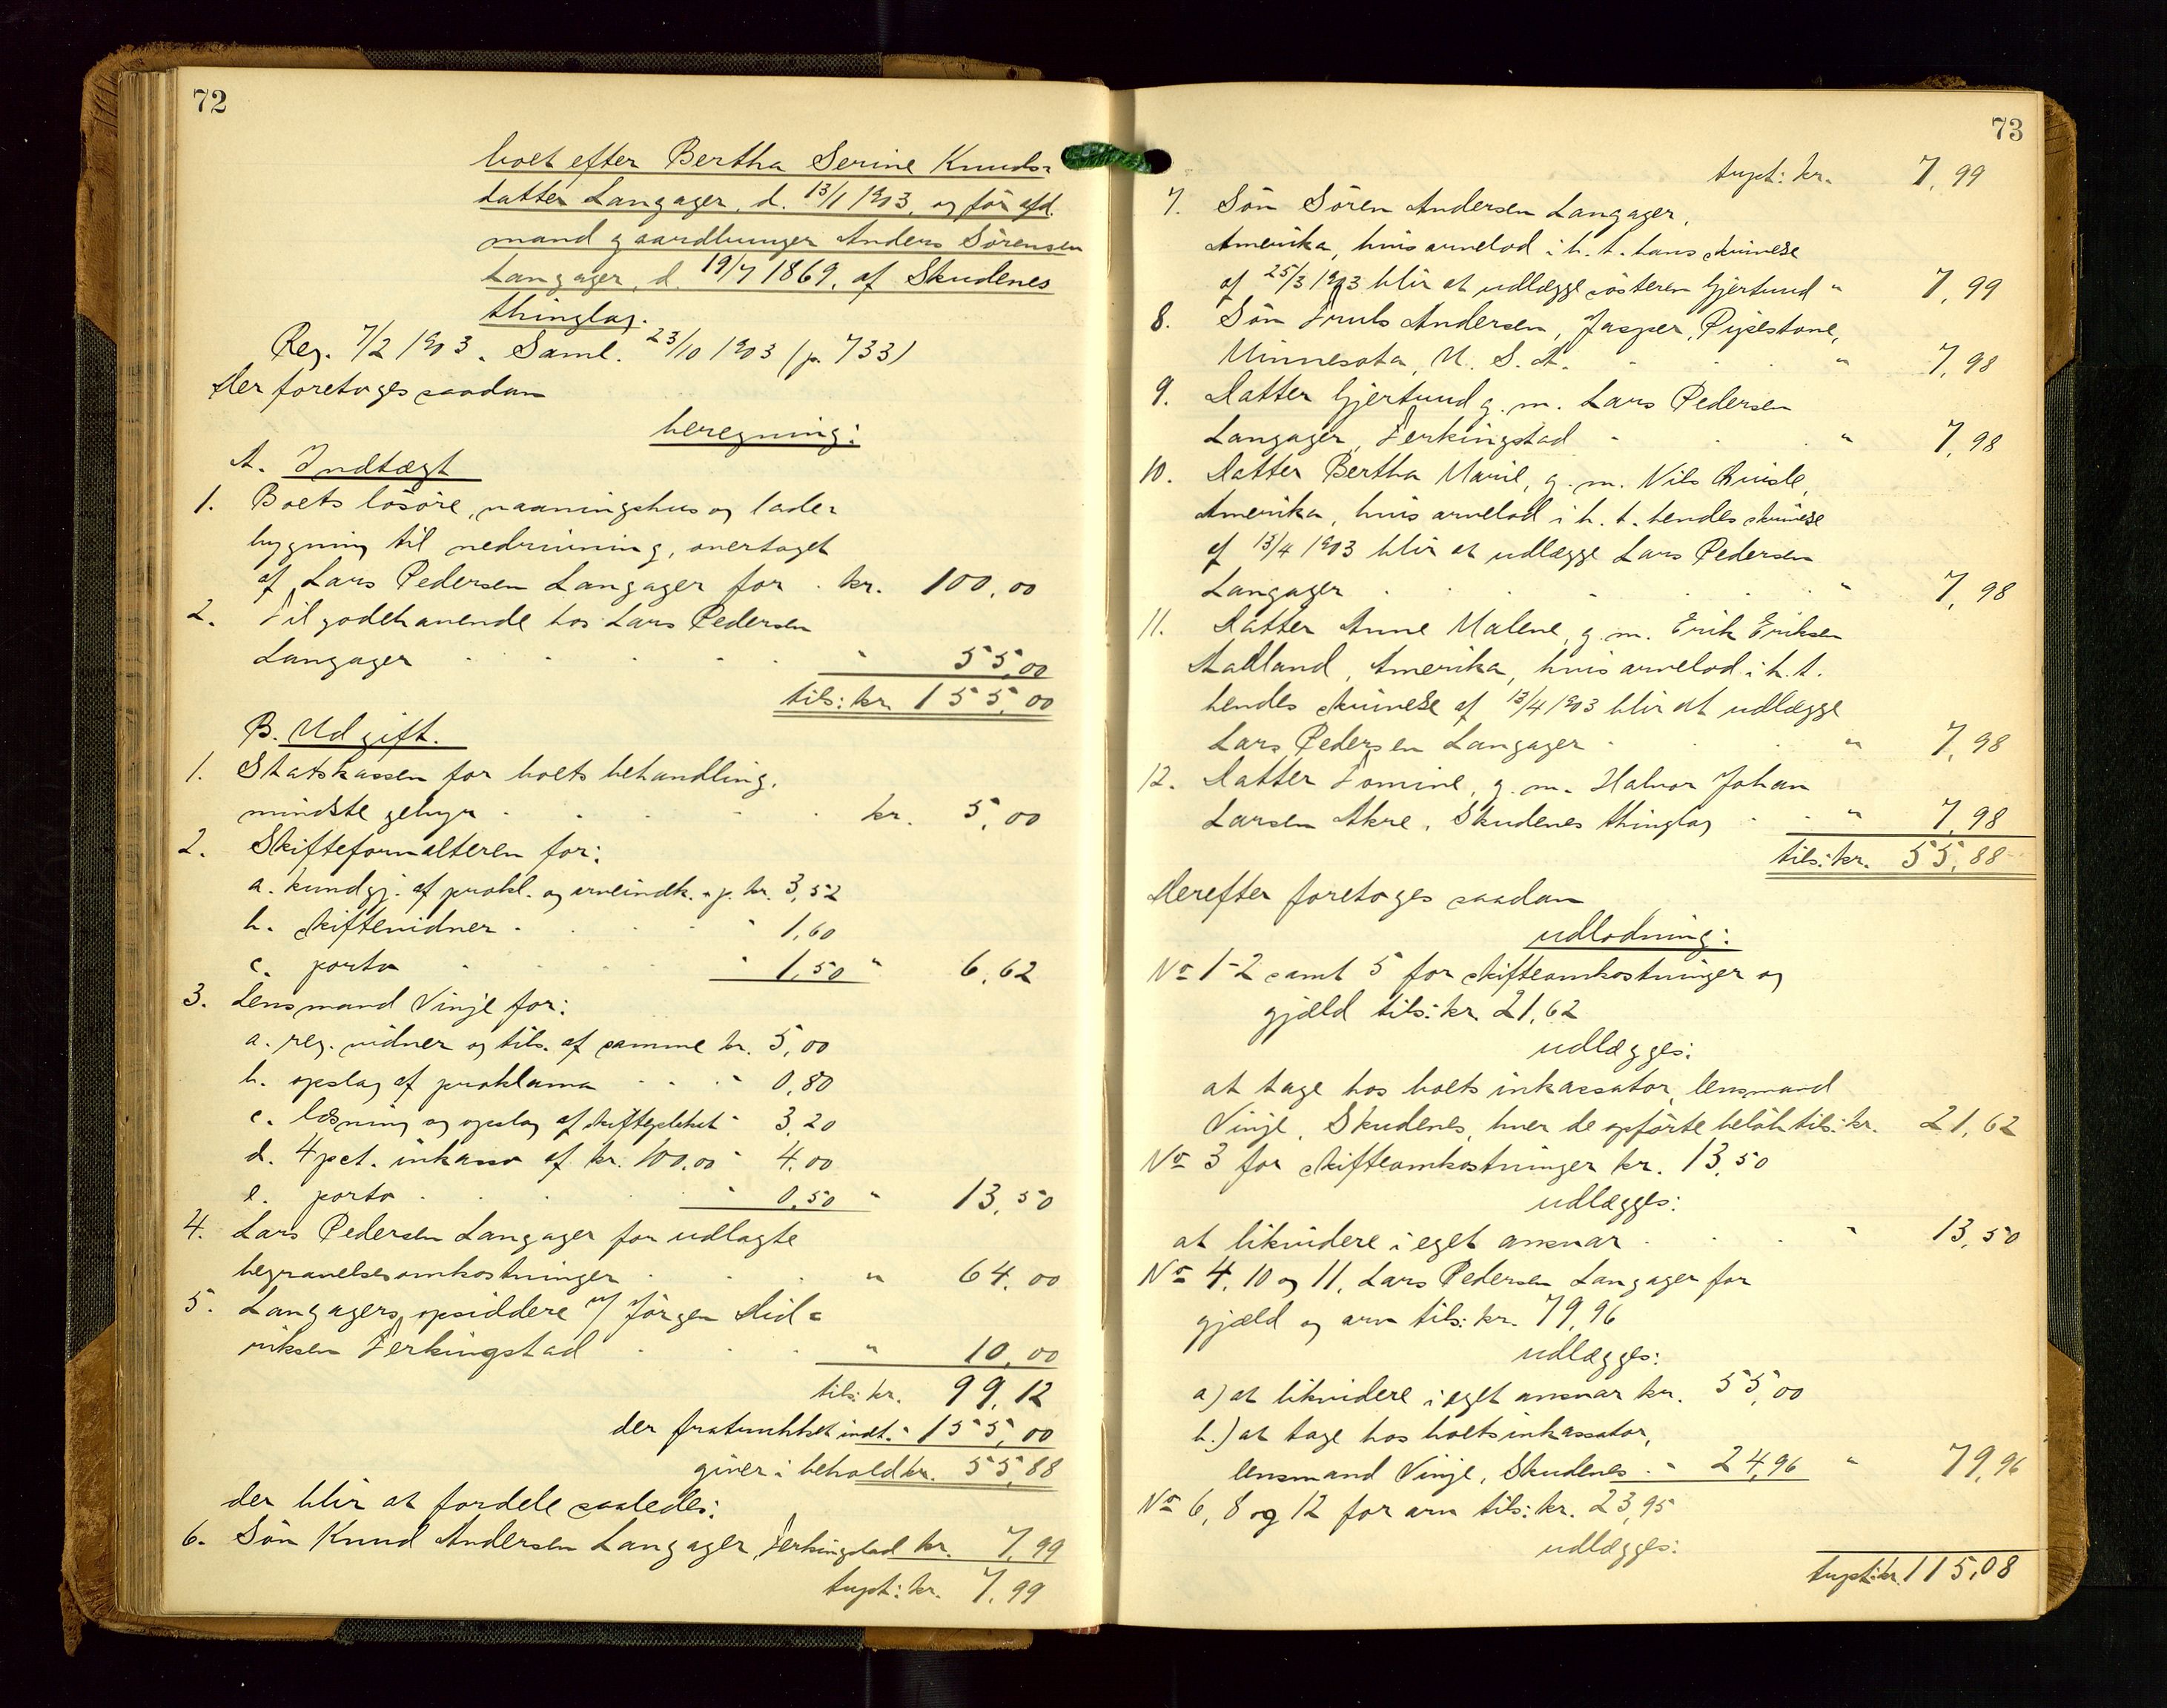 72
boet efter Bertha Serine Knuds=
datter Langager, d. 13/1 1903, og før afd.
mand gaardbruger Anders Sörensen
Langager, d. 19/7 1869, af Skudenes
thinglag.
Reg. 7/2 1903. Saml. 23/10 1903 (p. 733)
Der foretoges saadan
beregning:
A. Indtægt
1. Boets lösöre, vaaningshus og lade=
bygning til nedrivning, overtaget
af Lars Pedersen Langager for . kr. 100,00
2. Tilgodehavende hos Lars Pedersen
Langager . . . . . " 55,00
tils: kr. 155,00
B. Udgift.
1. Statskassen for boets behandling,
mindste gebyr . . . . . kr. 5,00
2. Skifteforvalteren for:
a. kundgj. af prokl. og arveindk. a.p. kr. 3,52
b. skiftevidner . . . . " 1,60
c. porto . . . . " 1,50 " 6,62
3. Lensmand Vinje for:
a. reg. vidner og tils. af samme kr. 5,00
b. opslag af proklama . . . " 0,80
c. læsning og opslag af skifteplakat " 3,20
d. 4 pct. inkasso af kr. 100,00 " 4,00
e. porto . . . . " 0,50 " 13,50
4. Lars Pedersen Langager for udlagte
begravelsesomkostninger . . . " 64,00
5. Langagers opsiddere v/ Jörgen Did=
riksen Ferkingstad . . . " 10,00
tils: kr. 99,12
der fratrukket indt. " 155,00
giver i behold kr. 55,88
der blir at fordele saaledes:
6. Sön Knud Andersen Langager, Ferkingstad kr. 7,99
trspt: kr. 7,99
73
trspt: kr. 7,99
7. Sön Sören Andersen Langager,
Amerika, hvis arvelod i h. t. hans skrivelse
af 25/3 1903 blir at udlægge sösteren Gjertrud " 7,99
8. Sön Truls Andersen, Jasper, Pipestone,
Minnesota, U. S. A. . . . " 7,98
9. Datter Gjertrud g. m. Lars Pedersen
Langager, Ferkingstad . . . " 7,98
10. Datter Bertha Marie, g. m. Nils
Amerika, hvis arvelod i h. t. hendes skrivelse
af 13/4 1903 blir at udlægge Lars Pedersen
Langager . . . . . " 7,98
11. Datter Anne Malene, g. m. Erik Eriksen
Aadland, Amerika, hvis arvelod i h. t.
hendes skrivelse af 13/4 1903 blir at udlægge
Lars Pedersen Langager . . . " 7,98
12. Datter Tomine, g. m. Halvor Johan
Larsen Akre, Skudenes thinglag . . " 7,98
tils: kr. 55,88
Derefter foretoges saadan
udlodning:
No 1-2 samt 5 for skifteomkostninger og
gjæld tils: kr. 21,62
udlægges:
at tage hos boets inkassator, lensmand
Vinje, Skudenes, hver de opförte belöb tils: kr. 21,62
No 3 for skifteomkostninger kr. 13,50
udlægges:
at likvidere i eget ansvar . . . " 13,50
No 4, 10 og 11, Lars Pedersen Langager for
gjæld og arv tils: kr. 79,96
udlægges:
a) at likvidere i eget ansvar kr. 55,00
b.) at tage hos boets inkassator,
lensmand Vinje, Skudenes . " 24,96 " 79,96
No 6, 8 og 12 for arv tils: kr. 23,95
udlægges:
trspt: kr. 115,08